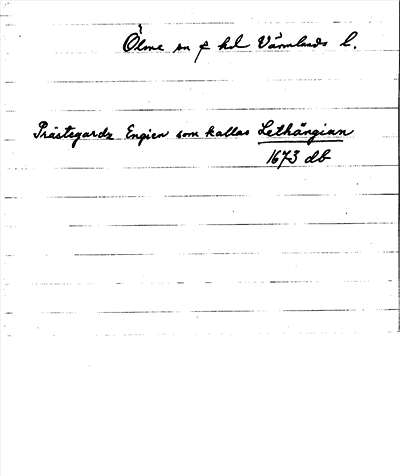 Ölme sn o hd Värmlands l.
Prästegardz Engien som kallas Lethängian
1673 db